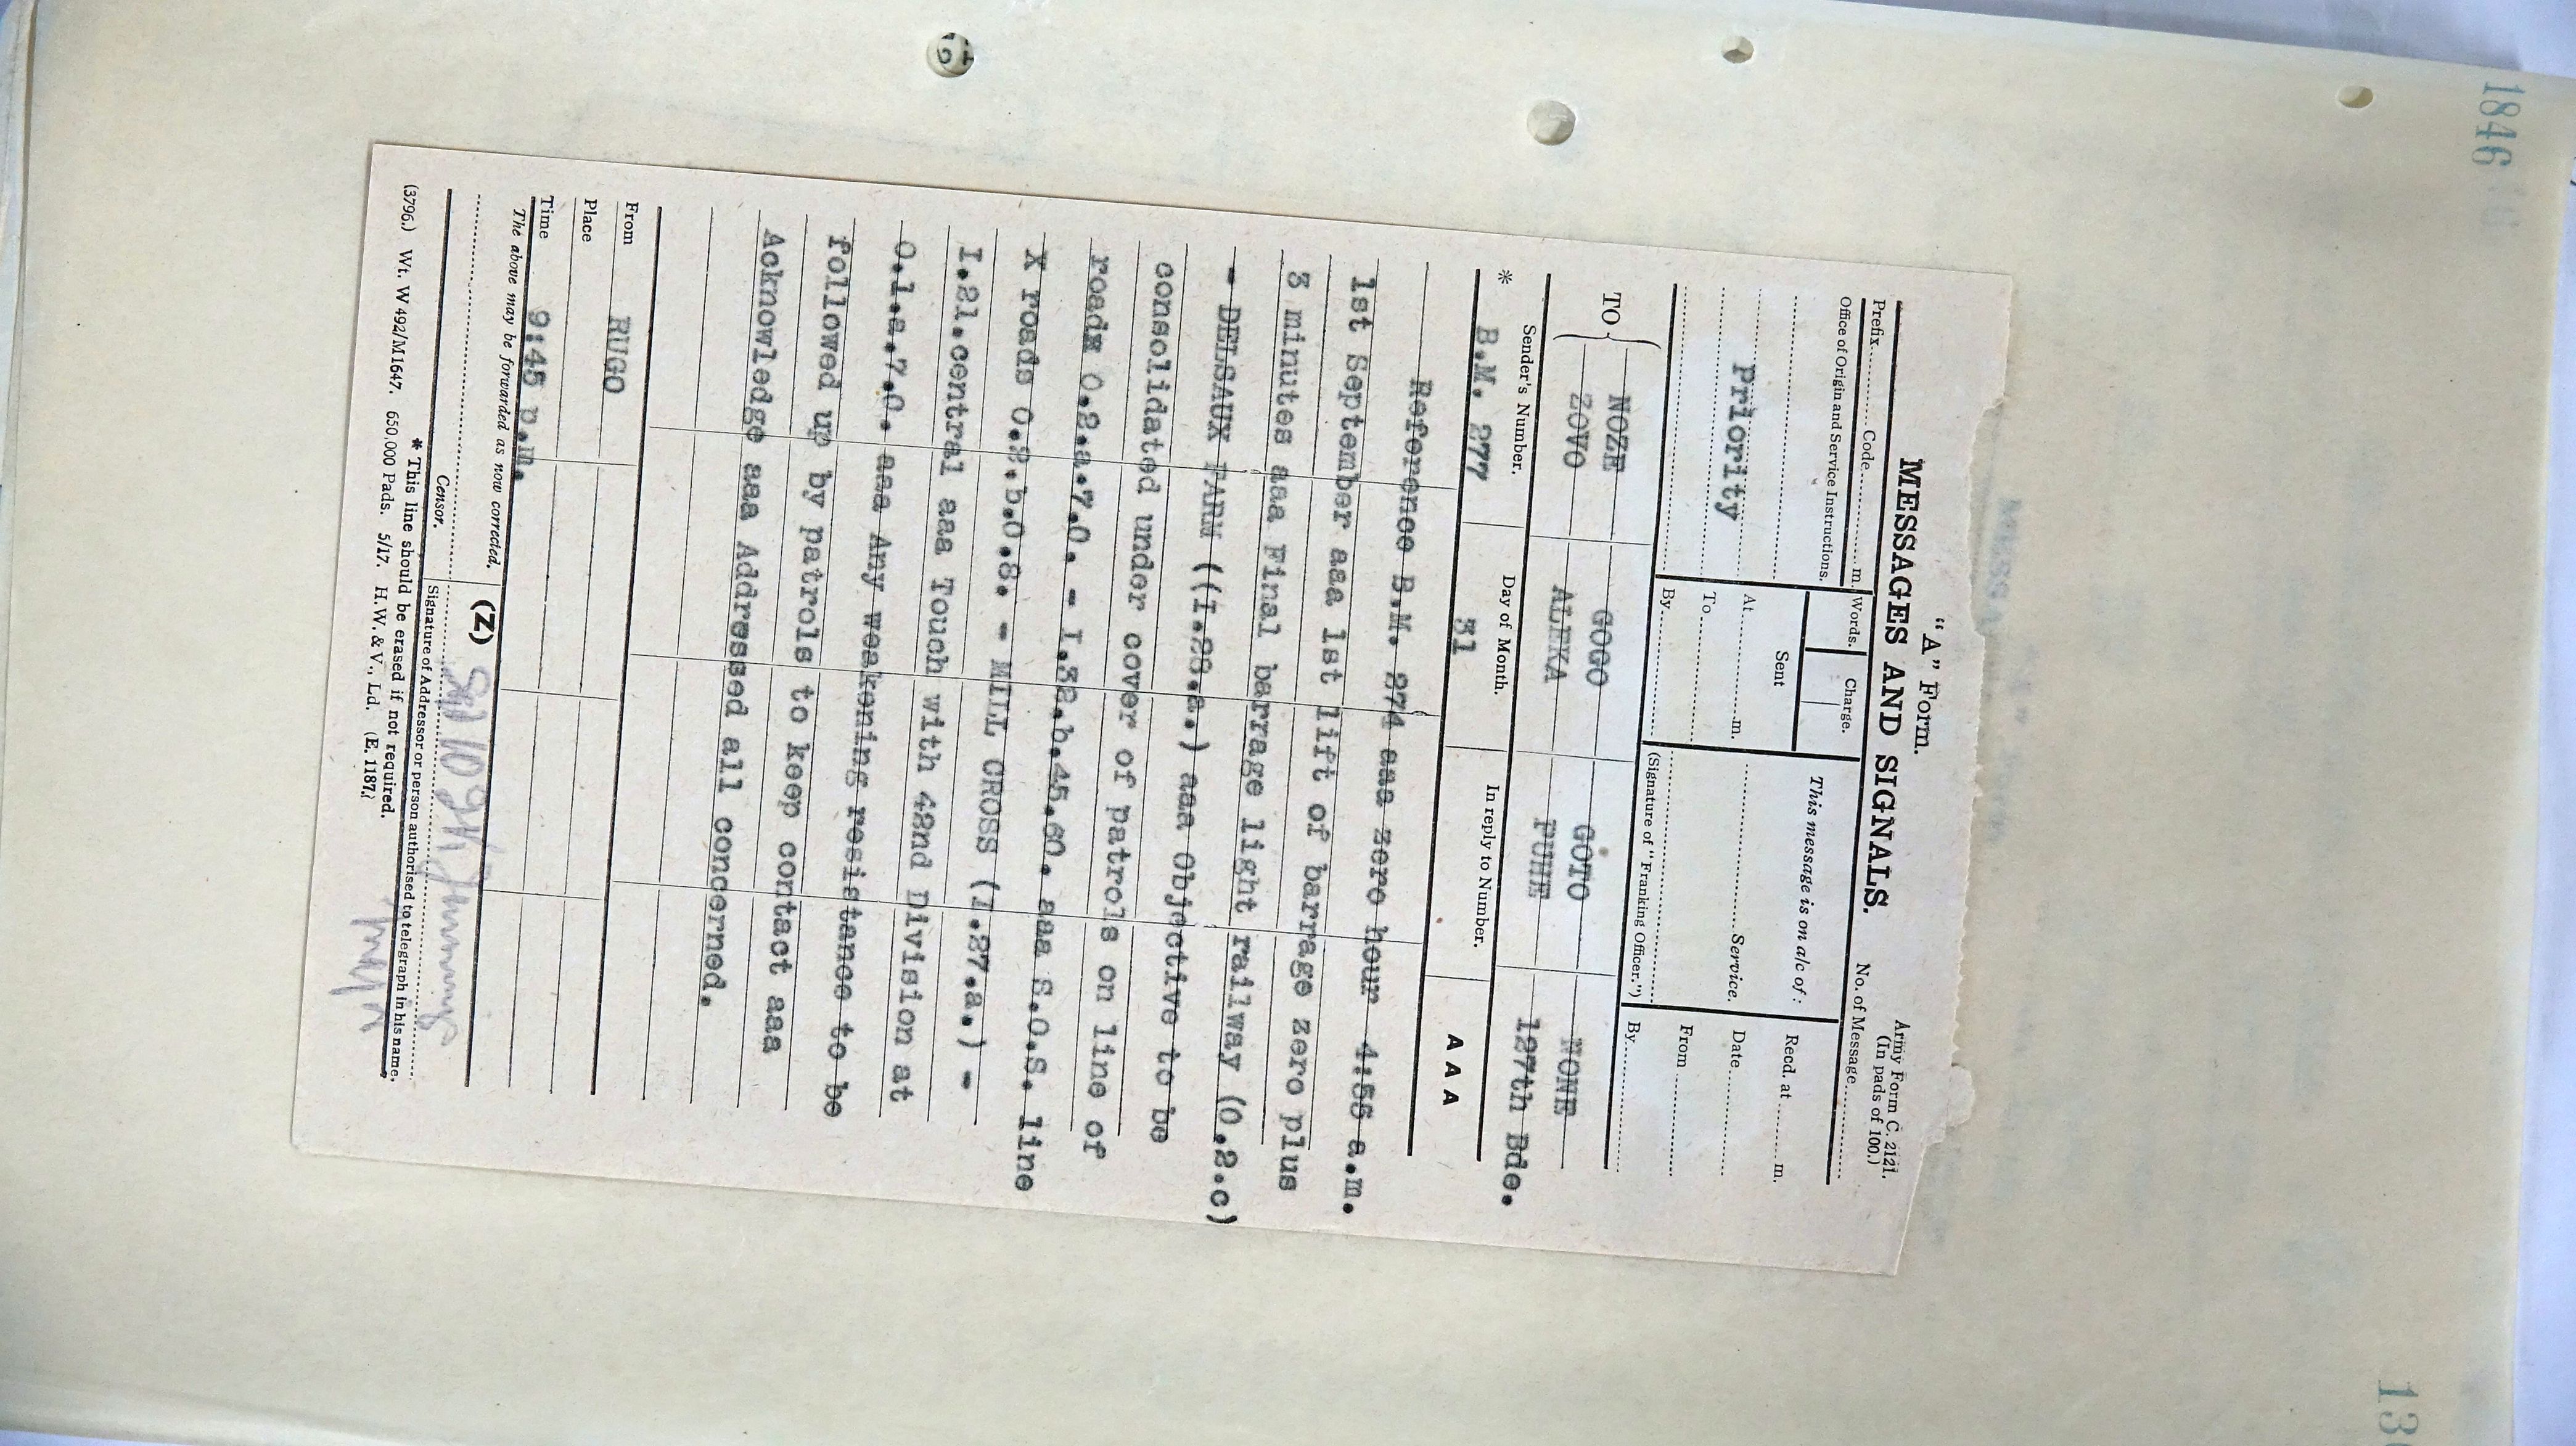 1846
"A" Form.
Army Form C. 2121.
(In pads of 100.)
MESSAGES AND SIGNALS.
No. of Message
Prefix Code m. Words. Charge. This message is on a/c of: Recd. at m.
Office of Origin and Service Instructions.
Sent
Priority
At m. Service. Date
To From
By (Signature of "Franking Officer.") By
TO NOZE GOGO GOTO NONE
ZOVO ALEKA FUHE 127th Bde.
Sender's Number. Day of Month. In reply to Number.
* B.M. 277 31 AAA
Reference B.M. 274 aaa zero hour 4:55 a.m.
1st September aaa 1st lift of barrage zero plus
3 minutes aaa Final barrage light railway (O.2.c)
- DELSAUX FARM ((I.26.a.) aaa Objective to be
consolidated under cover of patrols on line of
roadx O.2.a.7.0. - I.32.b.45.60. aaa S.O.S. line
X roads O.2.b.0.8. - MILL CROSS (I.27.a.) -
I.21.central aaa Touch with 42nd Division at
O.1.a.7.0. aaa Any weakening resistance to be
followed up by patrols to keep contact aaa
Acknowledge aaa Addressed all concerned.
From RUGO
Place
Time 9:45 p.m.
The above may be forwarded as now corrected. (Z)
Censor. Signature of Addressor or person authorised to telegraph in his name.
* This line should be erased if not required.
(3796.) Wt. W 492/M1647. 650,000 Pads. 5/17. H.W. & V., Ld. (E. 1187.)